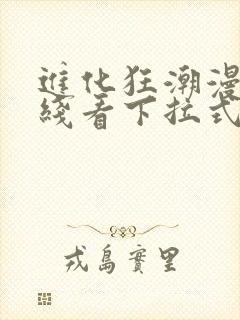 進化狂潮漫
綫看下拉式
戎島實里